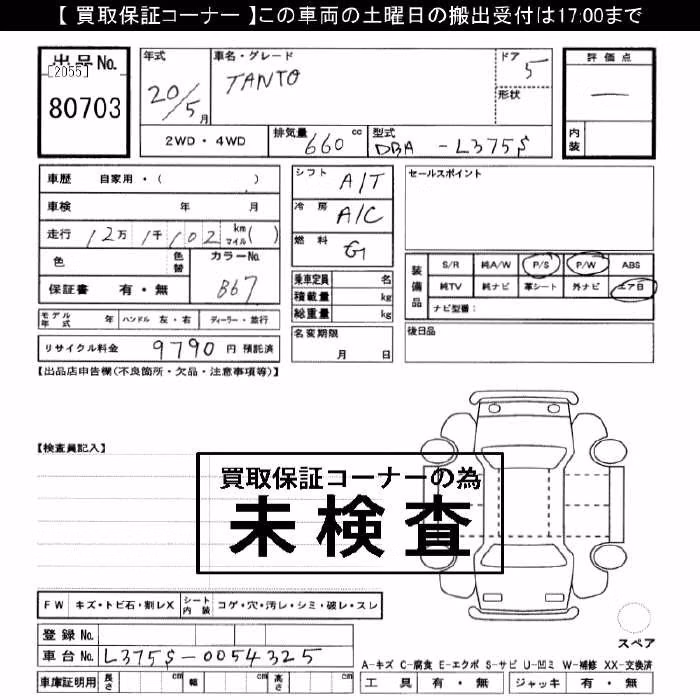 【 買取保証コーナー 】この車両の土曜日の搬出受付は17:00まで
出品No.
[2055]
80703
年式
20/5月
車名・グレード
TANTO
ドア
5
形状
評価点
—
内装
2WD・4WD
排気量
660 cc
型式
DBA -L375S
車歴 自家用・( )
車検 年 月
走行 12万 1千 102 km マイル ( )
色 色替 カラーNo.
B67
保証書 有・無
シフト A/T
冷房 A/C
燃料 G
セールスポイント
装備品
S/R 純A/W P/S P/W ABS
純TV 純ナビ 革シート 外ナビ エアB
ナビ型番:
乗車定員 名
積載量 kg
総重量 kg
モデル年式 年 ハンドル 左・右 ディーラー・並行
リサイクル料金 9790 円 預託済
名変期限
月 日
後日品
【出品店申告欄(不良箇所・欠品・注意事項等)】
【検査員記入】
買取保証コーナーの為
未検査
FW キズ・トビ石・割レX シート内装 コゲ・穴・汚レ・シミ・破レ・スレ
スペア
登録No.
車台No. L375S-0054325
A-キズ C-腐食 E-エクボ S-サビ U-凹ミ W-補修 XX-交換済
車庫証明用 長さ cm 幅 cm 高さ cm
工具 有・無 ジャッキ 有・無